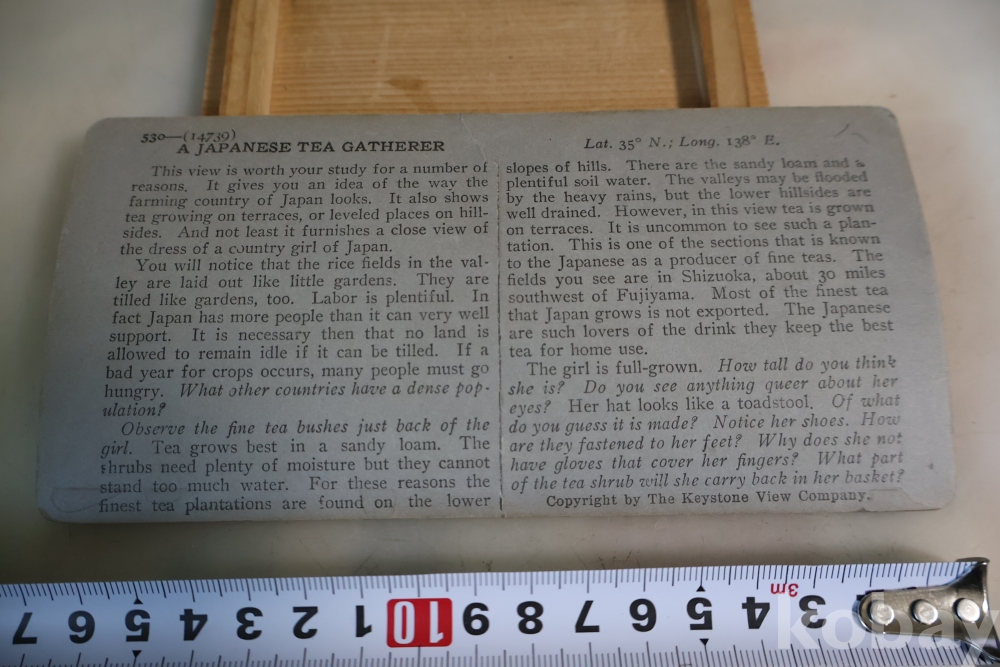 530—(14739)
A JAPANESE TEA GATHERER
Lat. 35° N.; Long. 138° E.
This view is worth your study for a number of
reasons. It gives you an idea of the way the
farming country of Japan looks. It also shows
tea growing on terraces, or leveled places on hill-
sides. And not least it furnishes a close view of
the dress of a country girl of Japan.
You will notice that the rice fields in the val-
ley are laid out like little gardens. They are
tilled like gardens, too. Labor is plentiful. In
fact Japan has more people than it can very well
support. It is necessary then that no land is
allowed to remain idle if it can be tilled. If a
bad year for crops occurs, many people must go
hungry. What other countries have a dense pop-
ulation?
Observe the fine tea bushes just back of the
girl. Tea grows best in a sandy loam. The
shrubs need plenty of moisture but they cannot
stand too much water. For these reasons the
finest tea plantations are found on the lower
slopes of hills. There are the sandy loam and a
plentiful soil water. The valleys may be flooded
by the heavy rains, but the lower hillsides are
well drained. However, in this view tea is grown
on terraces. It is uncommon to see such a plan-
tation. This is one of the sections that is known
to the Japanese as a producer of fine teas. The
fields you see are in Shizuoka, about 30 miles
southwest of Fujiyama. Most of the finest tea
that Japan grows is not exported. The Japanese
are such lovers of the drink they keep the best
tea for home use.
The girl is full-grown. How tall do you think
she is? Do you see anything queer about her
eyes? Her hat looks like a toadstool. Of what
do you guess it is made? Notice her shoes. How
are they fastened to her feet? Why does she not
have gloves that cover her fingers? What part
of the tea shrub will she carry back in her basket?
Copyright by The Keystone View Company.
7 6 5 4 3 2 1 10 9 8 7 6 5 4 3m 3
kobay